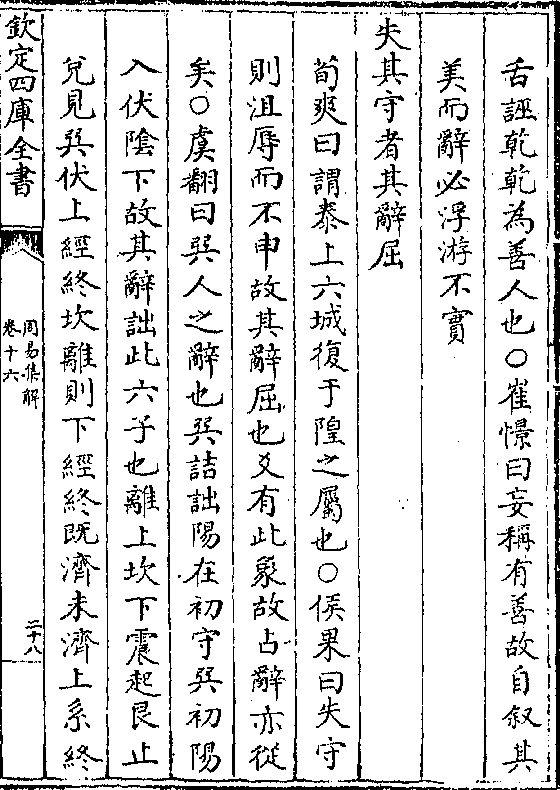 舌誣乾乾為善人也○崔憬曰妄稱有善故自叙其
美而辭必浮游不實
失其守者其辭屈
荀爽曰謂泰上六城復于隍之屬也○侯果曰失守
則沮辱而不申故其辭屈也爻有此象故占辭亦從
矣○虞翻曰巽人之辭也巽詰詘陽在初守巽初陽
入伏陰下故其辭詘此六子也離上坎下震起艮止
兌見巽伏上經終坎離則下經終既濟未濟上系終
欽定四庫全書
周易集解
卷十六
二十八